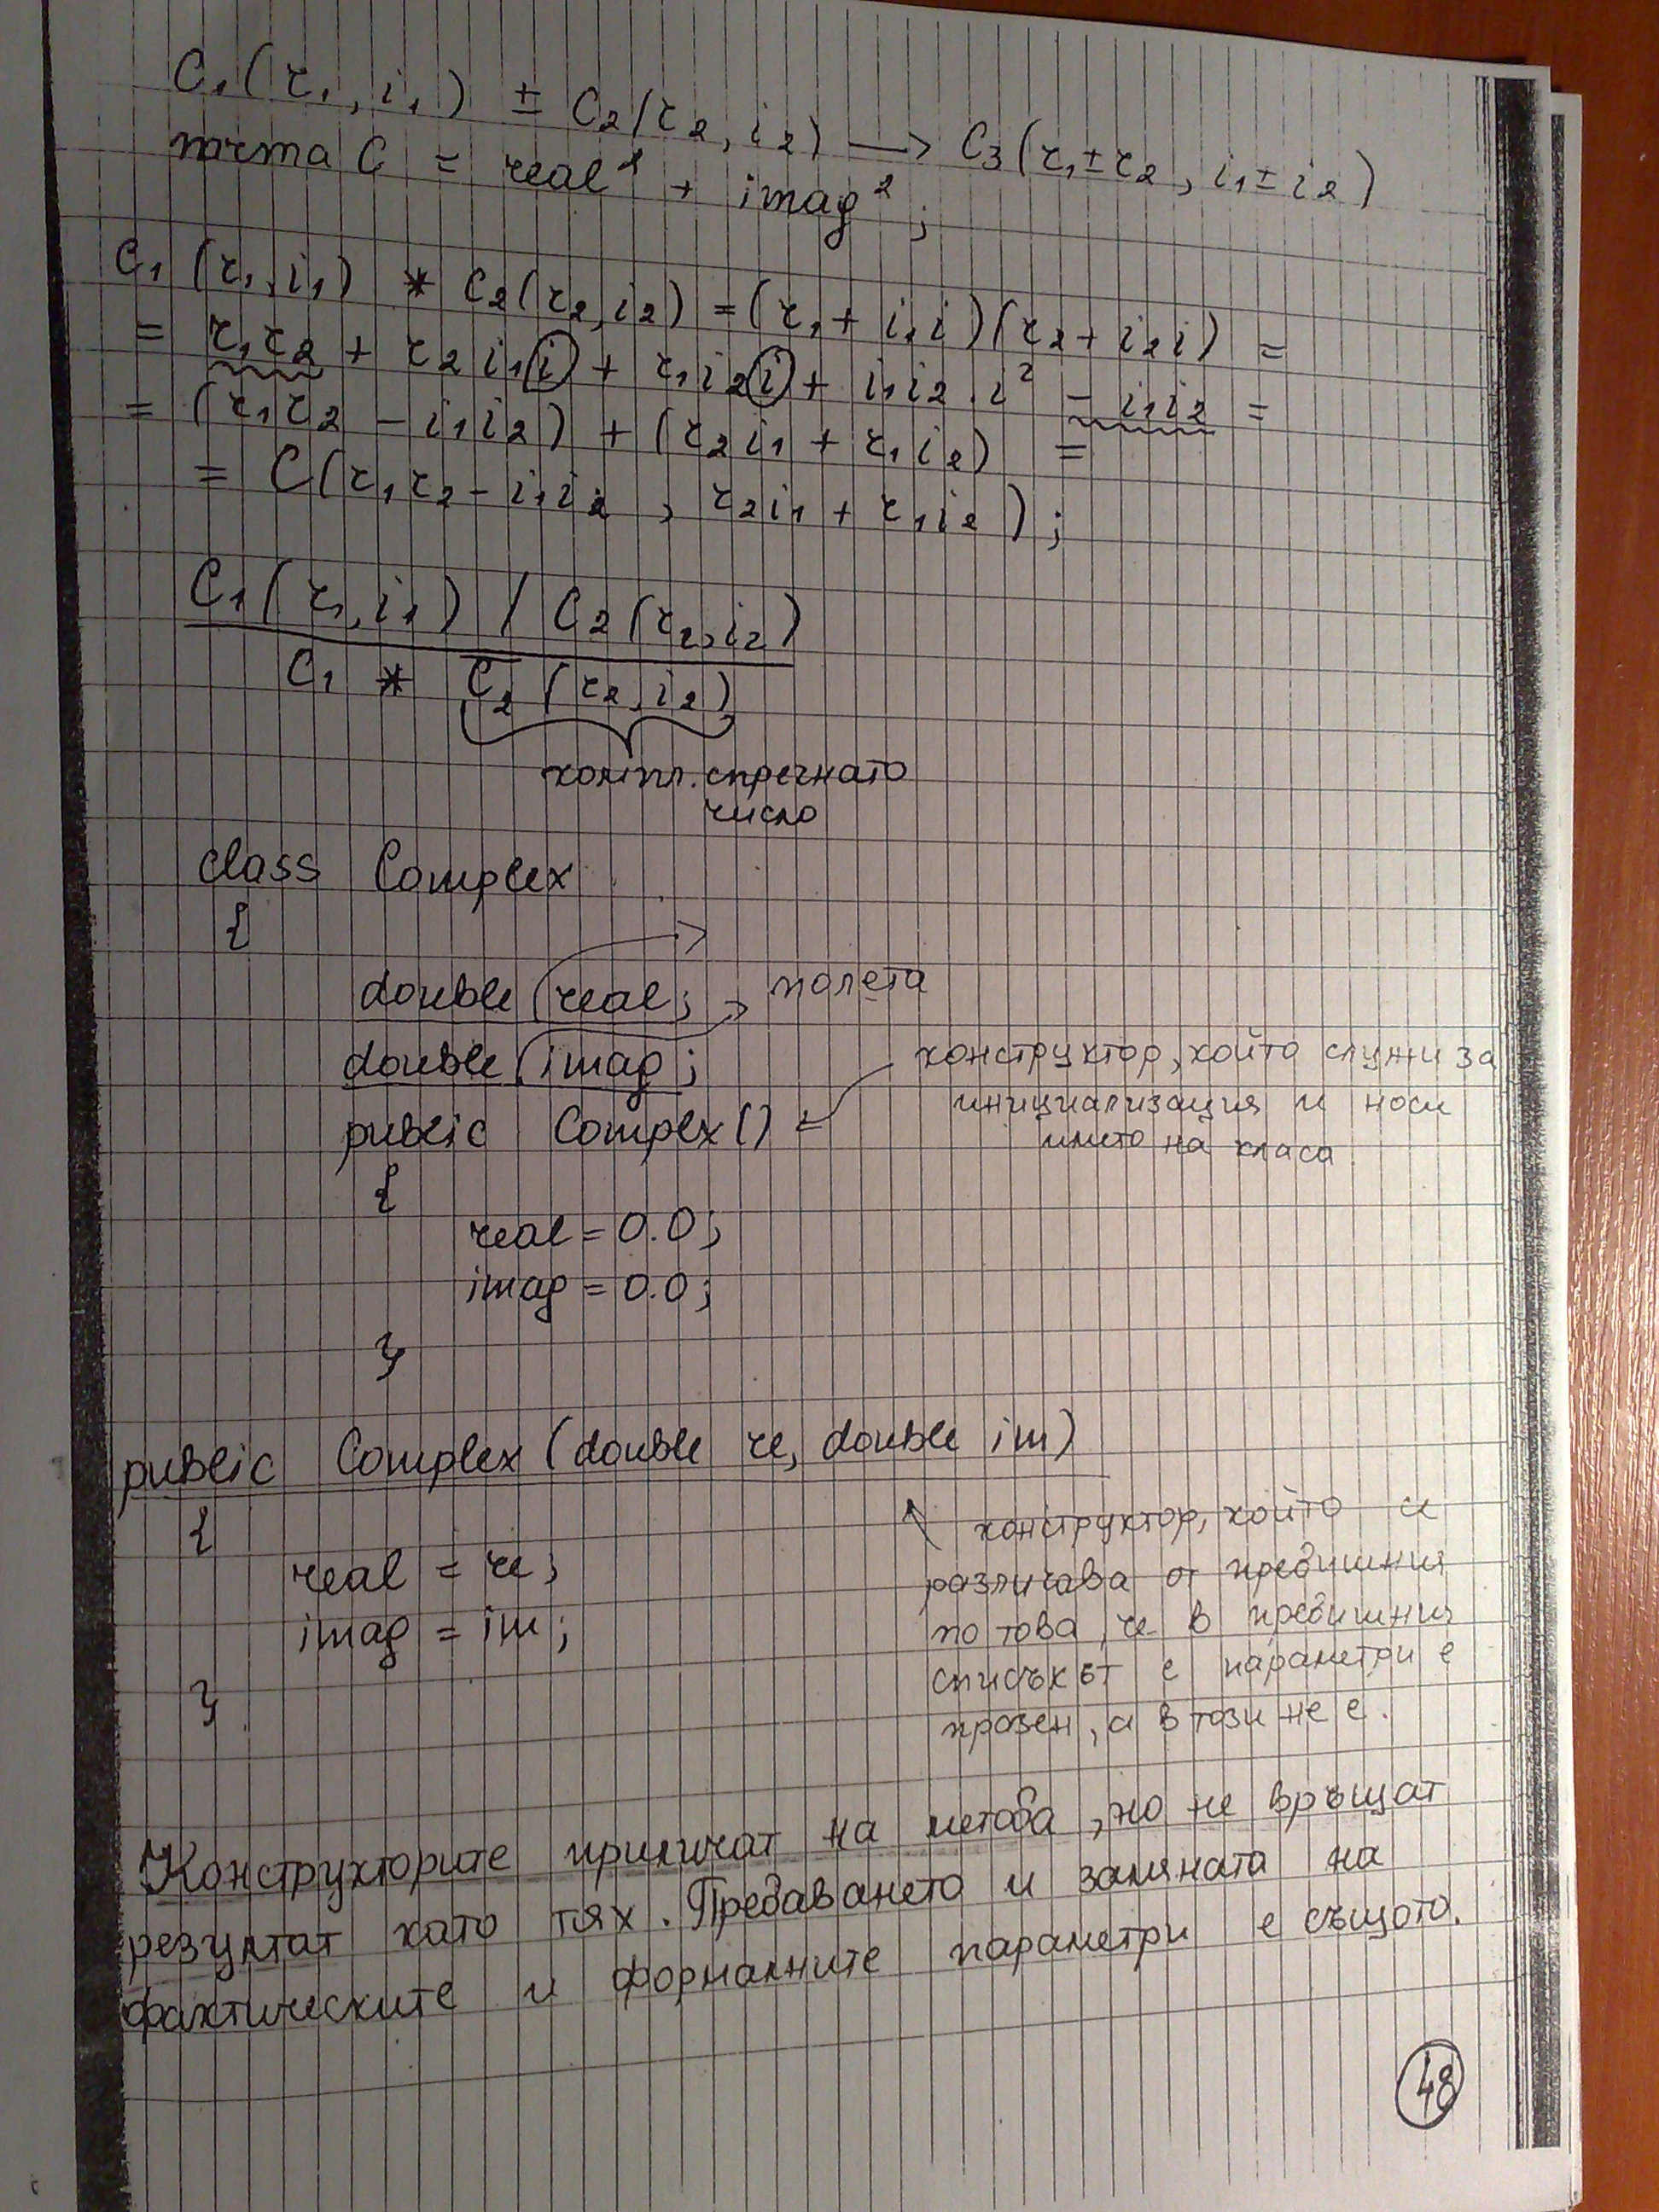 C₁(r₁, i₁) ± C₂(r₂, i₂) → C₃(r₁±r₂, i₁±i₂)
norma C = real² + imag²;
C₁(r₁, i₁) * C₂(r₂, i₂) = (r₁ + i₁i)(r₂ + i₂i) =
= r₁r₂ + r₂i₁i + r₁i₂i + i₁i₂.i² - i₁i₂ =
= (r₁r₂ - i₁i₂) + (r₂i₁ + r₁i₂) =
= C(r₁r₂ - i₁i₂, r₂i₁ + r₁i₂);
C₁(r₁, i₁) / C₂(r₂, i₂)
C₁ * C̅₂(r₂, i₂)
компл. спрегнато
число
class Complex
{
double real; полета
double imag;
конструктор, който служи за
public Complex()
инициализация и носи
името на класа
{
real = 0.0;
imag = 0.0;
}
public Complex(double re, double im)
{
конструктор, който се
real = re;
различава от предишния
imag = im;
по това, че в предишния
списъкът с параметри е
}
празен, а в този не е.
Конструкторите приличат на метода, но не връщат
резултат като тях. Предаването и замяната на
фактическите и формалните параметри е същото.
48